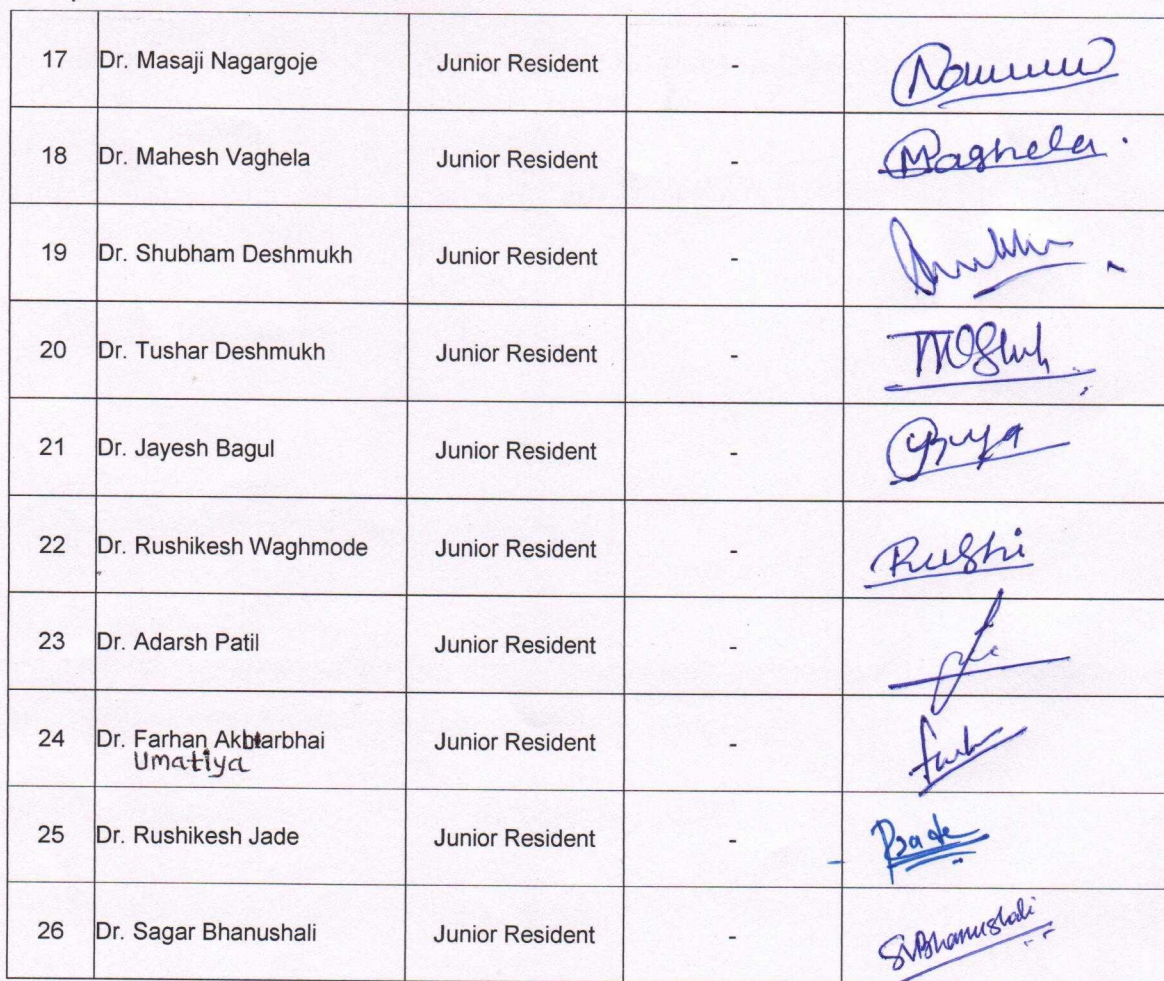 17 Dr. Masaji Nagargoje Junior Resident -
18 Dr. Mahesh Vaghela Junior Resident -
19 Dr. Shubham Deshmukh Junior Resident -
20 Dr. Tushar Deshmukh Junior Resident -
21 Dr. Jayesh Bagul Junior Resident -
22 Dr. Rushikesh Waghmode Junior Resident - Rushi
23 Dr. Adarsh Patil Junior Resident -
24 Dr. Farhan Akhtarbhai Junior Resident -
Umatiya
25 Dr. Rushikesh Jade Junior Resident -
26 Dr. Sagar Bhanushali Junior Resident - SVBhanushali